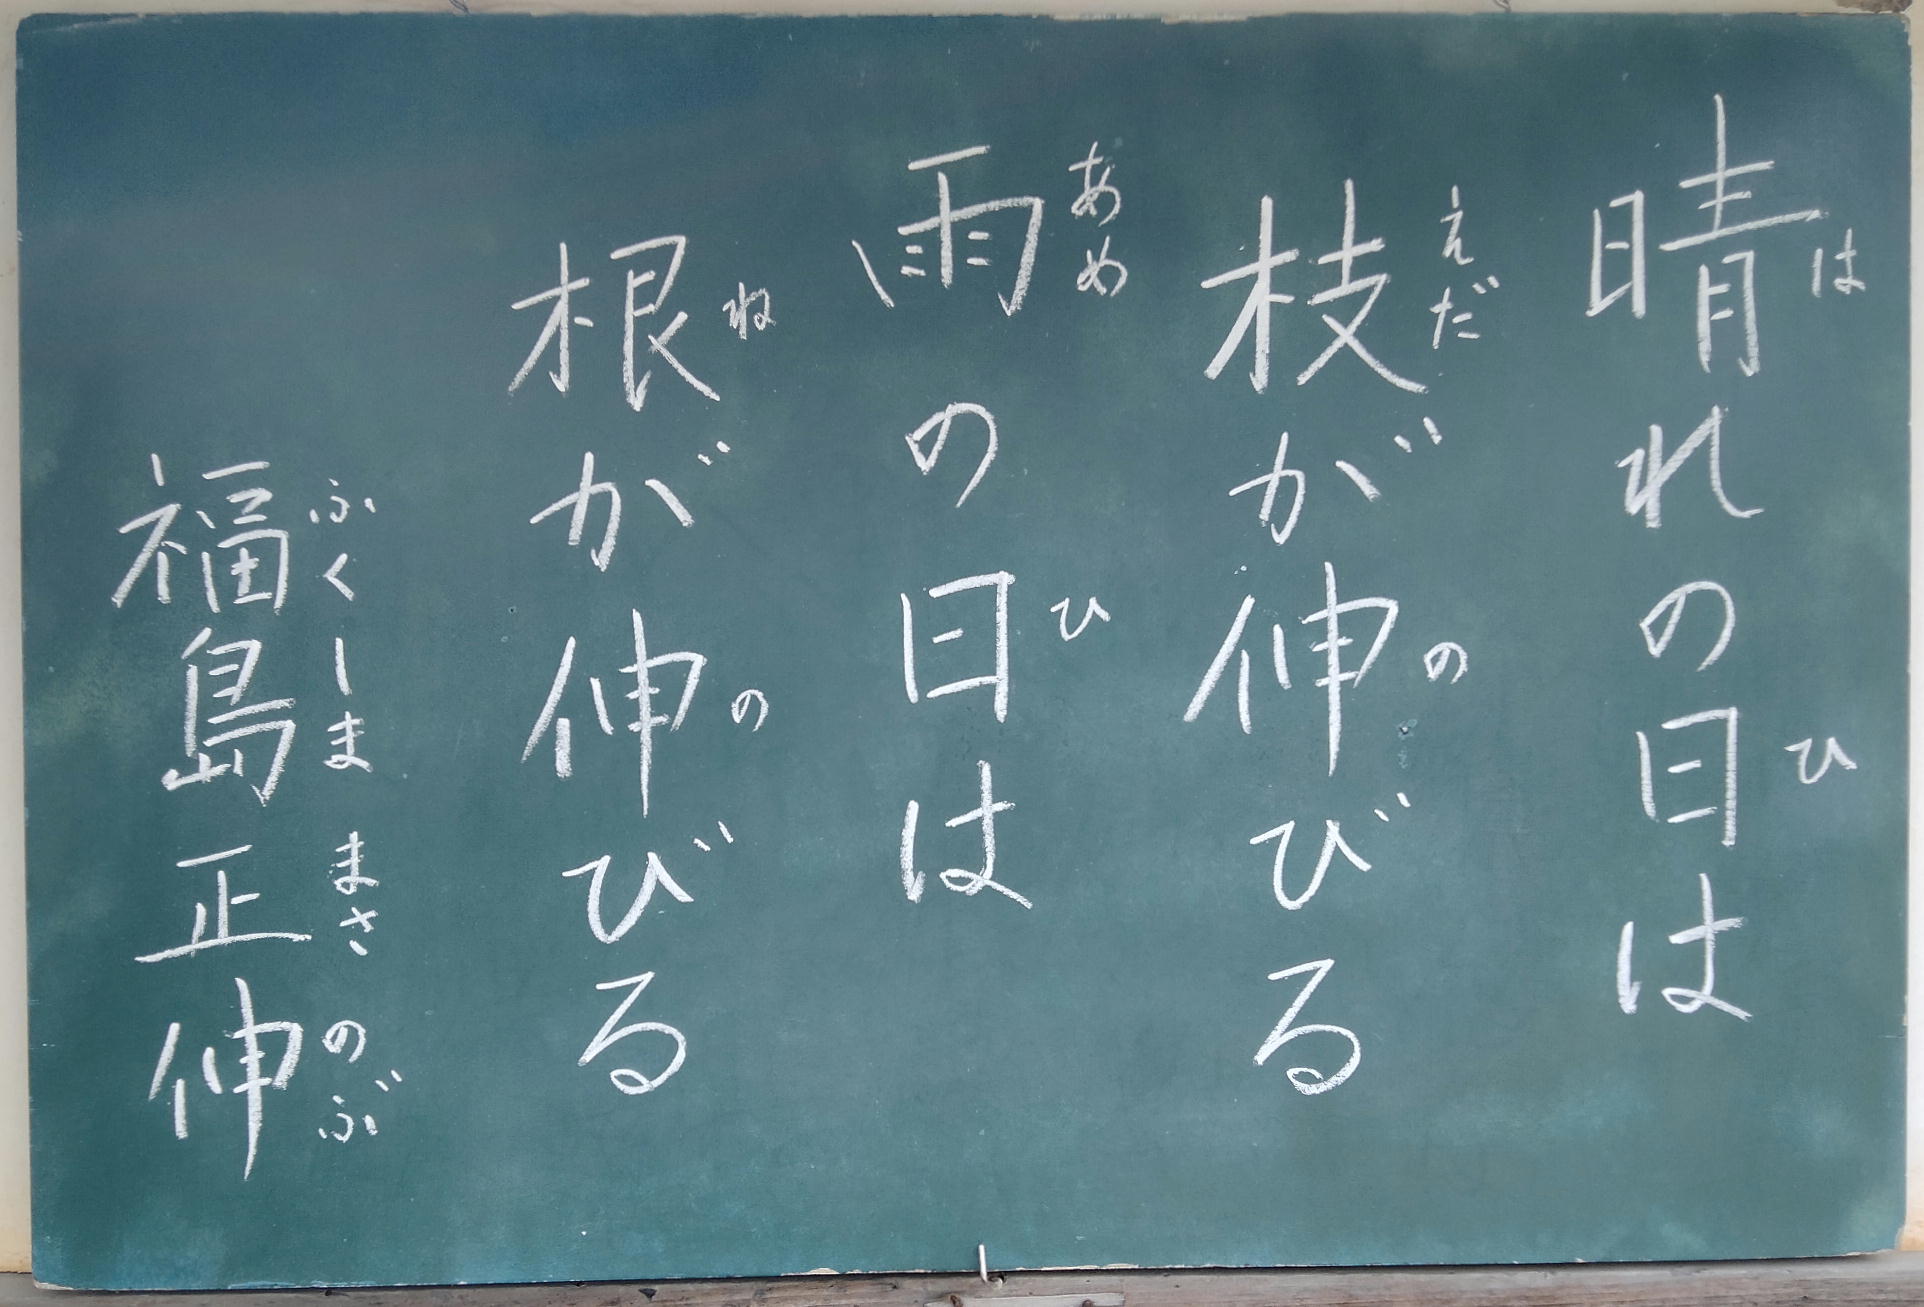 晴れの日は
枝が伸びる
雨の日は
根が伸びる
福島正伸
は
ひ
えだ
の
あめ
ひ
ね
の
ふくしま まさのぶ